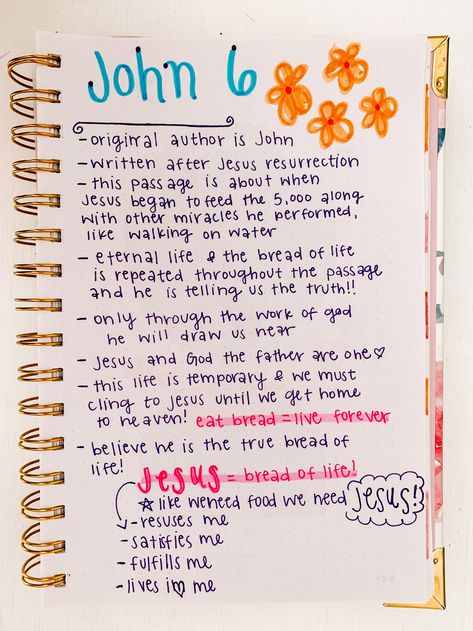 John 6
- original author is John
- written after Jesus resurrection
- this passage is about when
Jesus began to feed the 5,000 along
with other miracles he performed,
like walking on water
- eternal life & the bread of life
is repeated throughout the passage
and he is telling us the truth!!
- only through the work of god
he will draw us near
- Jesus and God the father are one♡
- this life is temporary & we must
cling to Jesus until we get home
to heaven! eat bread = live forever
- believe he is the true bread of
life!
Jesus = bread of life!
☆ like weneed food we need Jesus!
- resuses me
- satisfies me
- fulfills me
- lives in♡ me
120